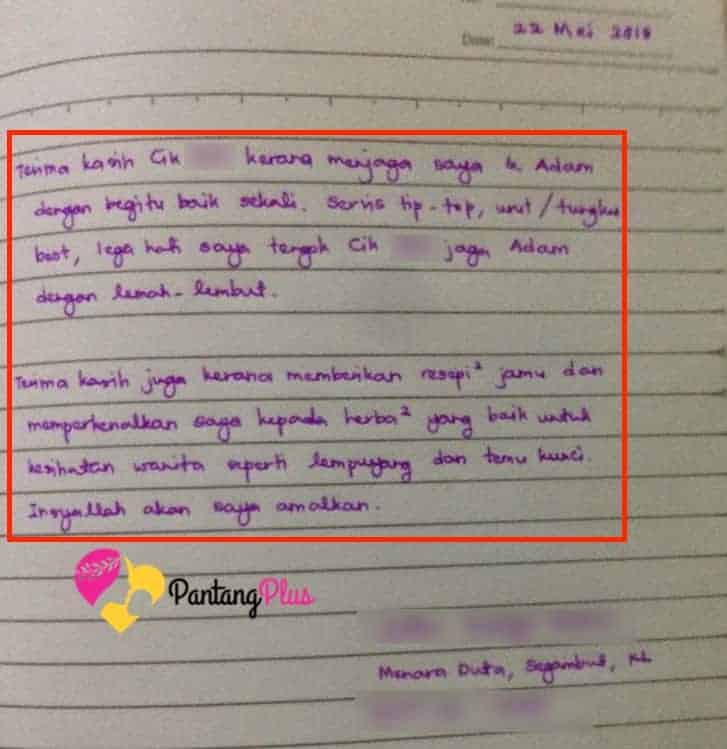 Date:
22 Mei 2018
Terima kasih Cik kerana menjaga saya & Adam
dengan begitu baik sekali. Servis tip-top, urut/tungku
best, lega hati saya tengok Cik jaga Adam
dengan lemah-lembut.
Terima kasih juga kerana memberikan resepi² jamu dan
memperkenalkan saya kepada herba² yang baik untuk
kesihatan wanita seperti lempuyang dan temu kunci.
Insyallah akan saya amalkan.
PantangPlus
Menara Duta, Segambut, KL